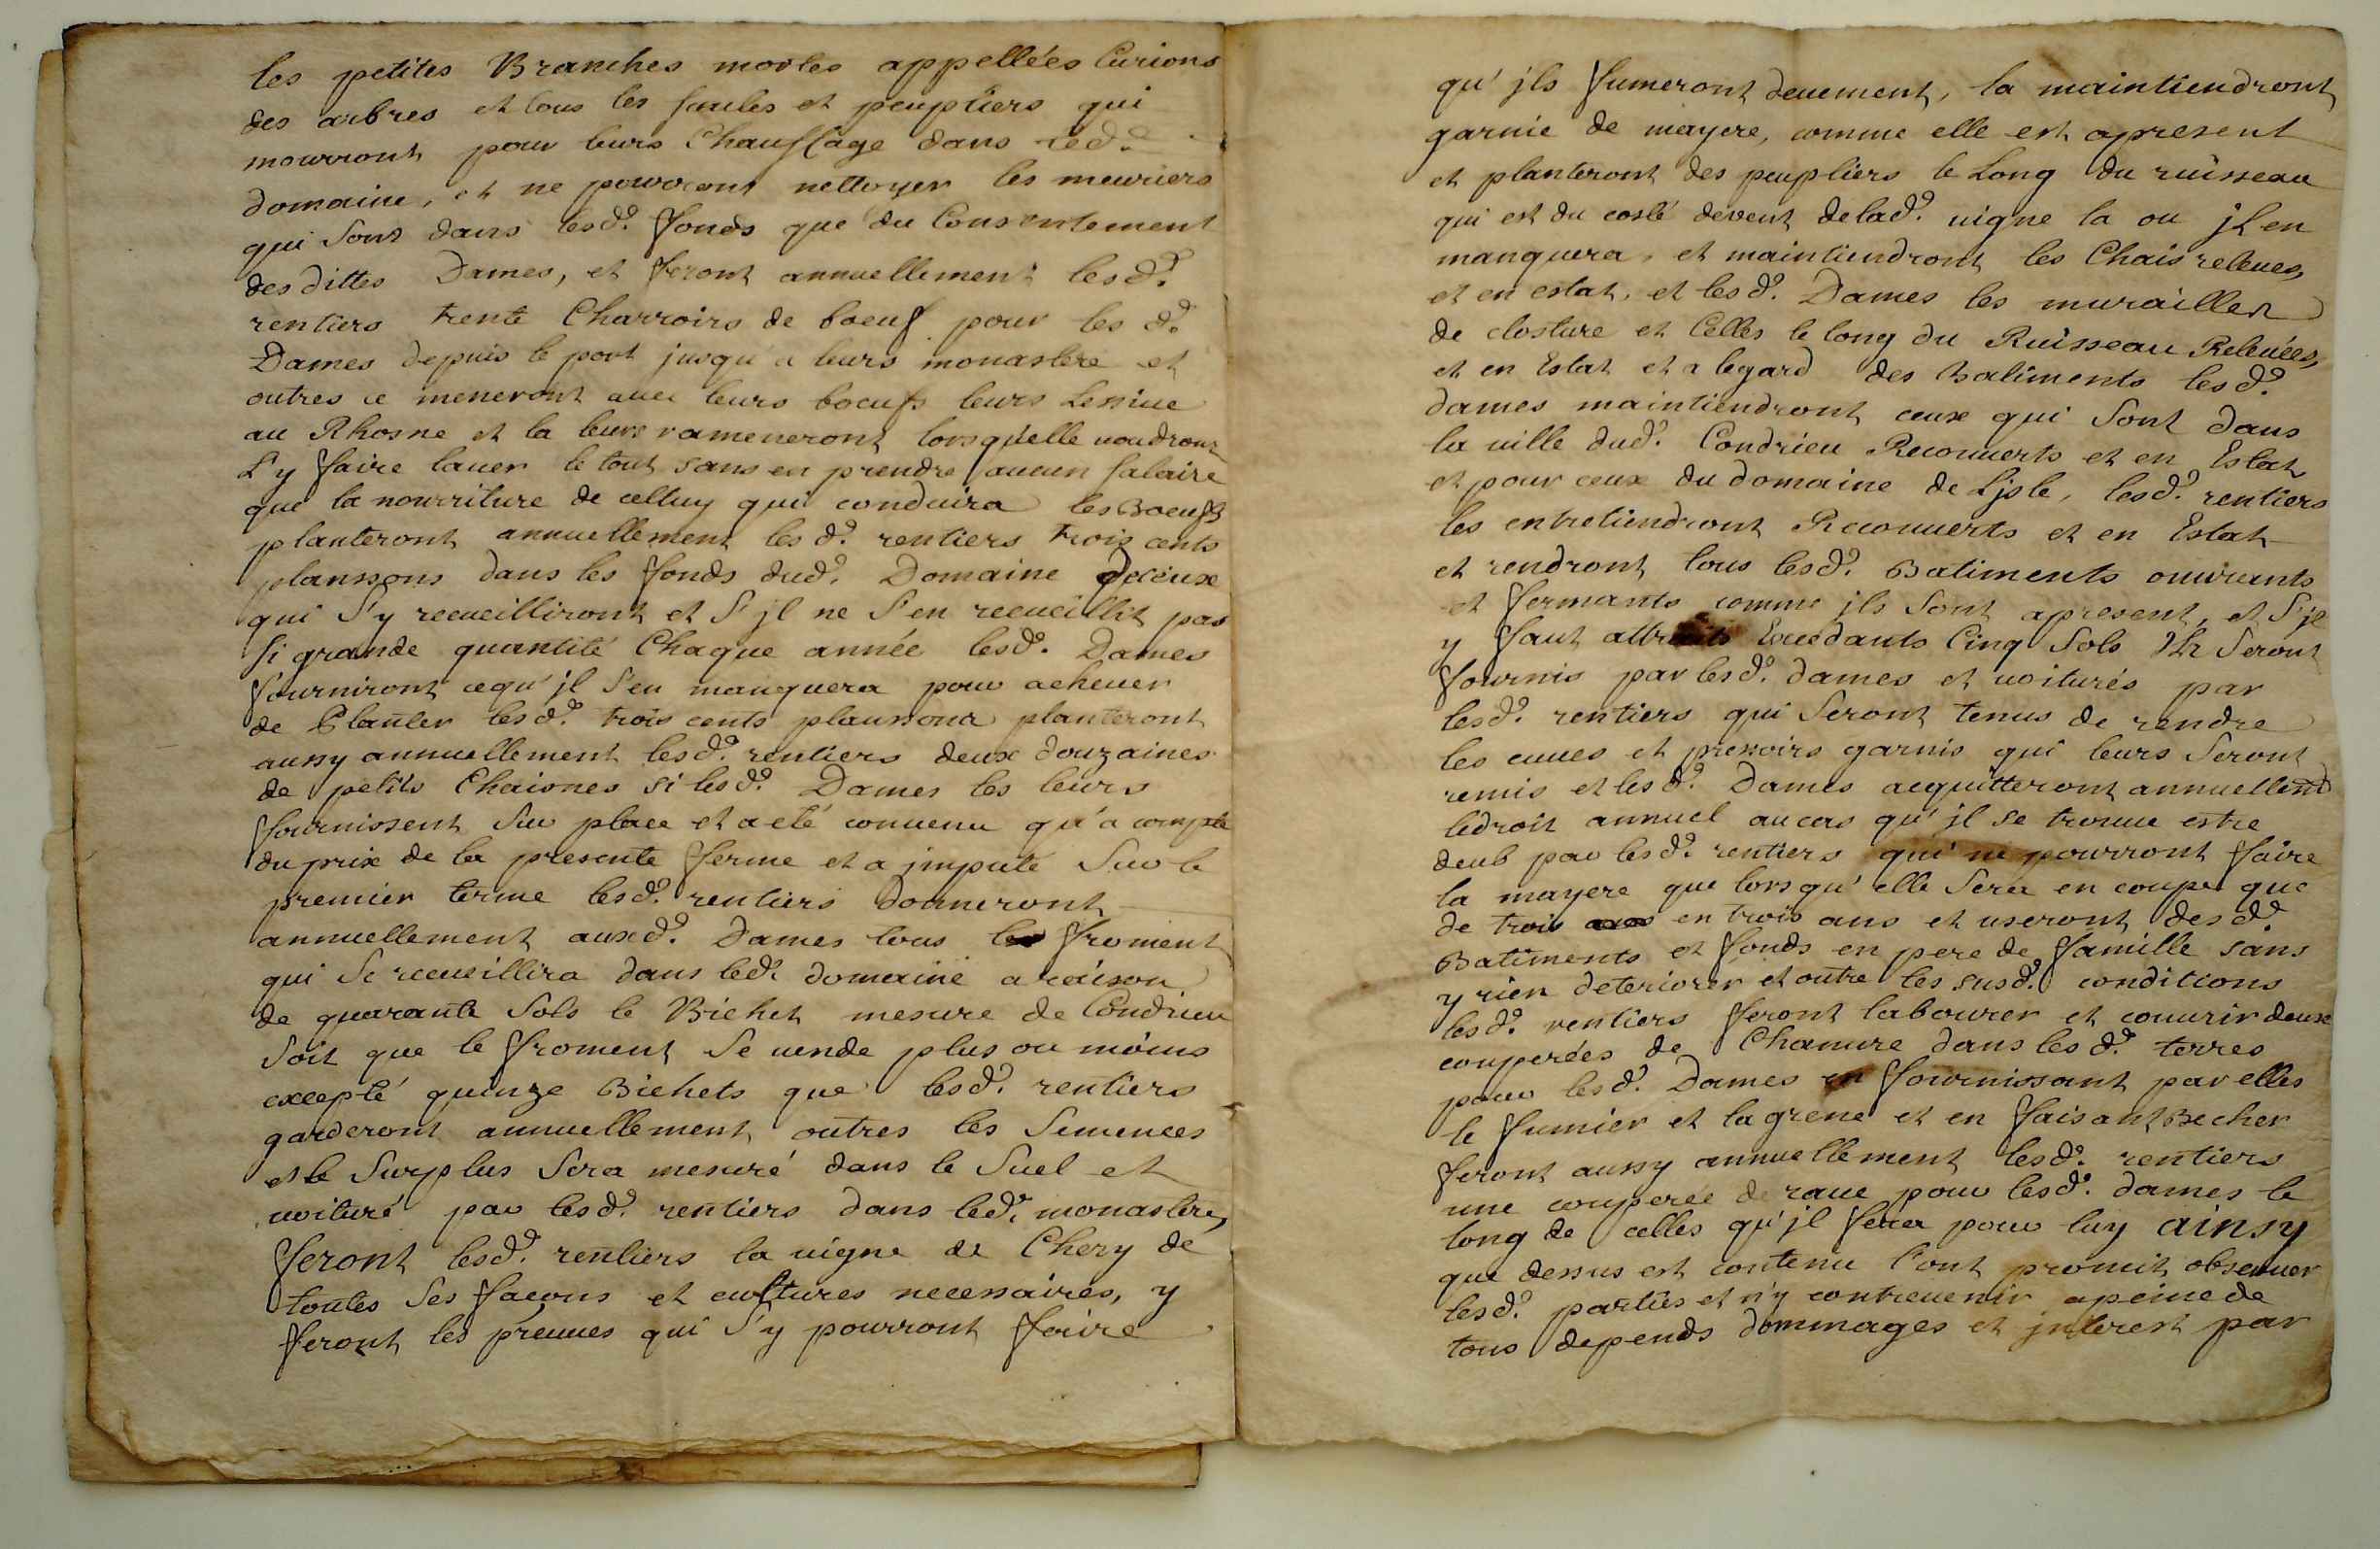 les petites Branches mortes appellées Curions
des arbres et tous les saules et peupliers qui
mourront pour leurs Chauffage dans led.
domaine, et ne pourront nettoyer les meuriers
qui sont dans lesd. ffonds que du Consentement
des dittes Dames, et fferont annuellement lesd.
rentiers trente Charroirs de boeuf pour les d.
Dames depuis le port jusqu'a leurs monastere et
outres ce meneront avec leurs boeufs leurs Lessiue
au Rhosne et la leurs rameneront lorsqu'elle uoudront
L'y ffaire lauer le tout sans en prendre aucun salaire
que la nourriture de celluy qui conduira les Boeufs
planteront annuellement les d. rentiers trois cents
planssons dans les ffonds dud. Domaine de ceux
qui s'y recueilliront et s'jl ne s'en recueillit pas
si grande quantité Chaque année lesd. Dames
ffourniront cequ'jl s'en manquera pour acheuer
de Planter lesd. trois cents planssons planteront
aussy annuellement lesd. rentiers deux douzaines
de petits Chaisnes si lesd. Dames les leurs
ffournissent sur place et a eté conuenu qu'a compte
du prix de la presente fferme et a jmputé sur le
premier terme lesd. rentiers donneront
annuellement auxd. Dames tous le ffroment
qui se recueillira dans led. domaine a raison
de quarante sols le Bichet mesure de Condrieu
soit que le ffroment se uende plus ou moins
excepté quinze Bichets que lesd. rentiers
garderont annuellement outres les semences
et le surplus sera mesuré dans le suel et
uoituré par lesd. rentiers dans led. monastere,
fferont lesd. rentiers la uigne de Chery de
toutes ses ffacons et cultures necessaires, y
fferont les preuues qui s'y pourront ffaire
qu'jls ffumeront deuement, la maintiendront
garnie de mayere, comme elle est apresent
et planteront des peupliers le Long du ruisseau
qui est du costé devent delad. uigne la ou jl en
manquera, et maintiendront les Chais releues,
et en estat, et les d. Dames les murailles
de closture et Celles le long du Ruisseau Releuées,
et en Estat et a legard des batiments lesd.
dames maintiendront ceux qui sont dans
la uille dud. Condrieu Recouuerts et en Estat
et pour ceux du domaine de Ljsle, lesd. rentiers
les entretiendront Recouuerts et en Estat
et rendront tous lesd. Batiments ouurants
et ffermants comme jls sont apresent, et s'jl
y ffaut Excedants Cinq sols Jls seront
ffournis par lesd. dames et uoiturés par
lesd. rentiers qui seront tenus de rendre
les cuues et pressoirs garnis qui leurs seront
remis et les d. Dames acquitteront annuellent
ledroit annuel aucas qu'jl se trouue estre
deub par lesd. rentiers qui ne pourront ffaire
la mayere que lorsqu'elle sera en coupe que
de trois en trois ans et useront des d.
Batiments et ffonds en pere de ffamille sans
y rien deteriorer et outre les susd. conditions
lesd. rentiers fferont labourer et couurir deux
couperées de Chanure dans les d. terres
pour les d. Dames en ffournissant par elles
le ffumier et la grene et en ffaisant Becher
fferont aussy annuellement lesd. rentiers
une couperée de raue pour lesd. dames le
long de celles qu'jl ffera pour luy ainsy
que dessus est contenu l'ont promit obseruer
lesd. parties et n'y contreuenir apeine de
tous depends dommages et jnterest par